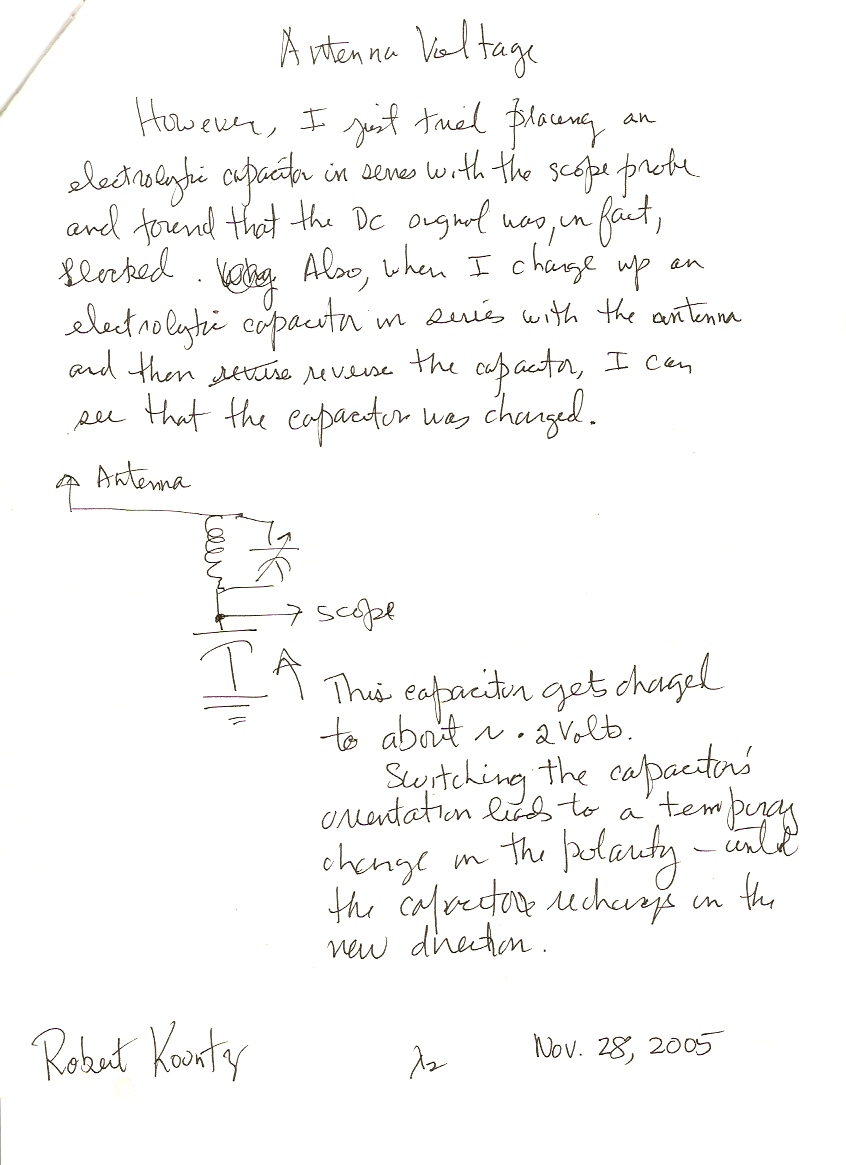 Antenna Voltage
However, I just tried placing an
electrolytic capacitor in series with the scope probe
and found that the DC signal was, in fact,
blocked. Also, when I charge up an
electrolytic capacitor in series with the antenna
and then reverse the capacitor, I can
see that the capacitor was charged.
Antenna
scope
This capacitor gets charged
to about ~ .2 Volts.
Switching the capacitors'
orientation leads to a temporary
change in the polarity – until
the capacitors recharge in the
new direction.
Robert Koontz λ2 Nov. 28, 2005